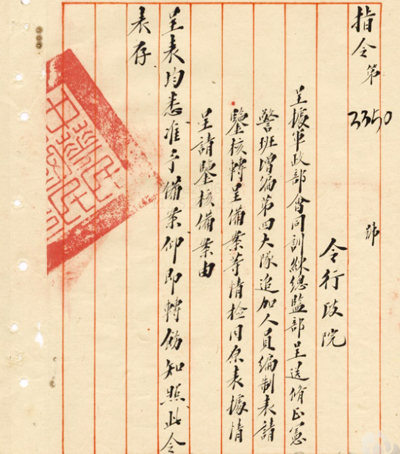 指令 第 3350 號
令行政院
呈據軍政部會同訓練總監部呈送修正憲
警班增編第四大隊追加人員編制表請
鑒核轉呈備案等情檢同原表據情
呈請鑒核備案由
呈表均悉准予備案仰即轉飭知照此令
表存